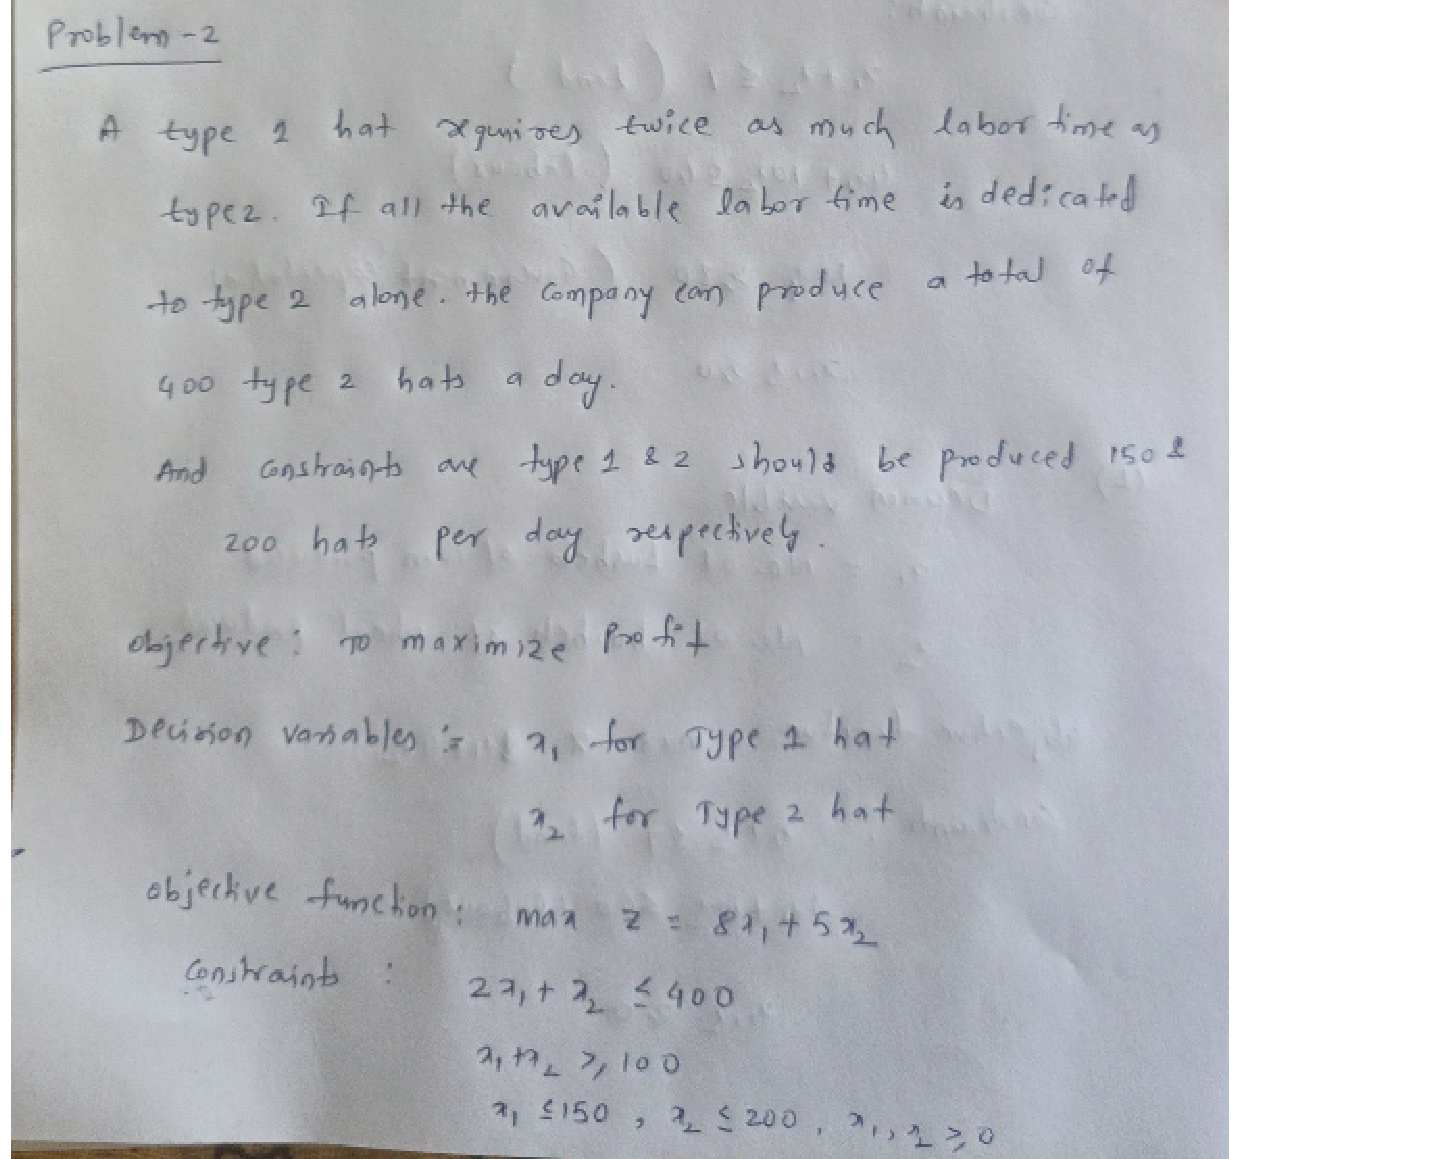 Problem - 2
A type 1 hat requires twice as much labor time as
type 2. If all the available labor time is dedicated
to type 2 alone. the company can produce a total of
400 type 2 hats a day.
And constraints are type 1 & 2 should be produced 150 &
200 hats per day respectively.
objective : To maximize Profit
Decision variables :- x₁ for Type 1 hat
x₂ for Type 2 hat
objective function : max z = 8x₁ + 5x₂
constraints : 2x₁ + x₂ ≤ 400
x₁ + x₂ ≥ 100
x₁ ≤ 150 , x₂ ≤ 200 , x₁, 2 ≥ 0